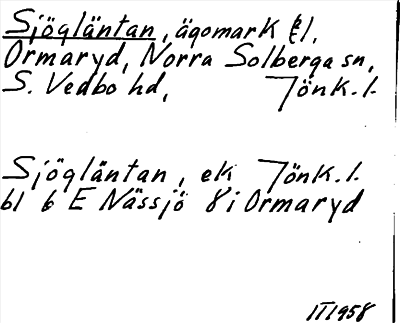 Sjögläntan, ägomark t/
Ormaryd, Norra Solberga sn,
S. Vedbo hd, Jönk. l.
Sjögläntan, ek Jönk. l.
bl 6 E Nässjö 8i Ormaryd
III 1958